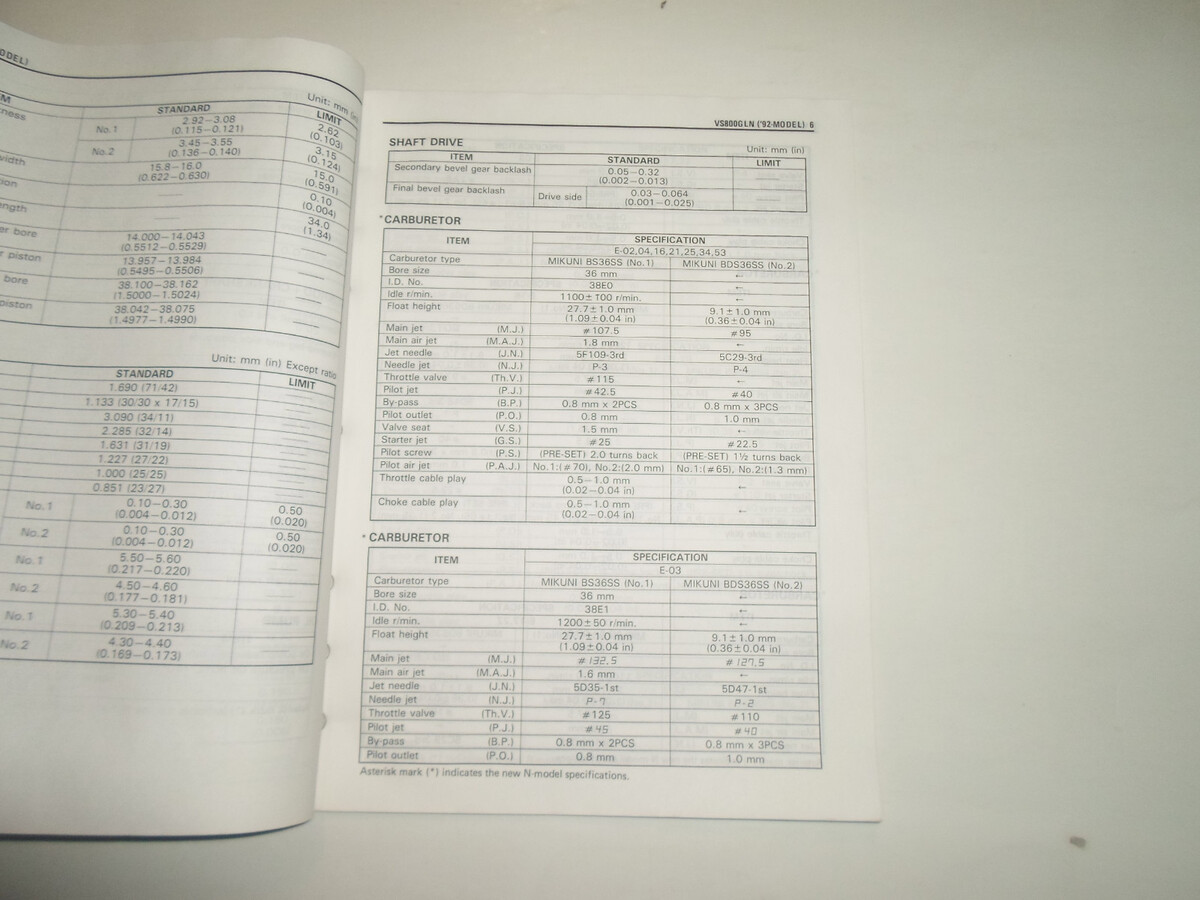 ODEL)
Unit: mm (in)
STANDARD LIMIT
No.1 2.92—3.08 (0.115—0.121) 2.82 (0.103)
No.2 3.45—3.55 (0.136—0.140) 3.15 (0.124)
15.8—16.0 (0.622—0.630) 15.0 (0.591)
0.10 (0.004)
34.0 (1.34)
14.000—14.043 (0.5512—0.5529)
piston 13.957—13.984 (0.5495—0.5506)
bore 38.100—38.162 (1.5000—1.5024)
piston 38.042—38.075 (1.4977—1.4990)
Unit: mm (in) Except ratio
STANDARD LIMIT
1.690 (71/42)
1.133 (30/30 x 17/15)
3.090 (34/11)
2.285 (32/14)
1.631 (31/19)
1.227 (27/22)
1.000 (25/25)
0.851 (23/27)
No.1 0.10—0.30 (0.004—0.012) 0.50 (0.020)
No.2 0.10—0.30 (0.004—0.012) 0.50 (0.020)
No.1 5.50—5.60 (0.217—0.220)
No.2 4.50—4.60 (0.177—0.181)
No.1 5.30—5.40 (0.209—0.213)
No.2 4.30—4.40 (0.169—0.173)
VS800GLN ('92-MODEL) 6
SHAFT DRIVE Unit: mm (in)
ITEM STANDARD LIMIT
Secondary bevel gear backlash 0.05—0.32 (0.002—0.013)
Final bevel gear backlash Drive side 0.03—0.064 (0.001—0.025)
*CARBURETOR
ITEM SPECIFICATION
E-02,04,16,21,25,34,53
Carburetor type MIKUNI BS36SS (No.1) MIKUNI BDS36SS (No.2)
Bore size 36 mm ←
I.D. No. 38E0 ←
Idle r/min. 1100±100 r/min. ←
Float height 27.7±1.0 mm (1.09±0.04 in) 9.1±1.0 mm (0.36±0.04 in)
Main jet (M.J.) #107.5 #95
Main air jet (M.A.J.) 1.8 mm ←
Jet needle (J.N.) 5F109-3rd 5C29-3rd
Needle jet (N.J.) P-3 P-4
Throttle valve (Th.V.) #115 ←
Pilot jet (P.J.) #42.5 #40
By-pass (B.P.) 0.8 mm x 2PCS 0.8 mm x 3PCS
Pilot outlet (P.O.) 0.8 mm 1.0 mm
Valve seat (V.S.) 1.5 mm ←
Starter jet (G.S.) #25 #22.5
Pilot screw (P.S.) (PRE-SET) 2.0 turns back (PRE-SET) 1½ turns back
Pilot air jet (P.A.J.) No.1:(#70), No.2:(2.0 mm) No.1:(#65), No.2:(1.3 mm)
Throttle cable play 0.5—1.0 mm (0.02—0.04 in) ←
Choke cable play 0.5—1.0 mm (0.02—0.04 in) ←
*CARBURETOR
ITEM SPECIFICATION
E-03
Carburetor type MIKUNI BS36SS (No.1) MIKUNI BDS36SS (No.2)
Bore size 36 mm ←
I.D. No. 38E1 ←
Idle r/min. 1200±50 r/min. ←
Float height 27.7±1.0 mm (1.09±0.04 in) 9.1±1.0 mm (0.36±0.04 in)
Main jet (M.J.) #132.5 #127.5
Main air jet (M.A.J.) 1.6 mm ←
Jet needle (J.N.) 5D35-1st 5D47-1st
Needle jet (N.J.) P-7 P-2
Throttle valve (Th.V.) #125 #110
Pilot jet (P.J.) #45 #40
By-pass (B.P.) 0.8 mm x 2PCS 0.8 mm x 3PCS
Pilot outlet (P.O.) 0.8 mm 1.0 mm
Asterisk mark (*) indicates the new N-model specifications.